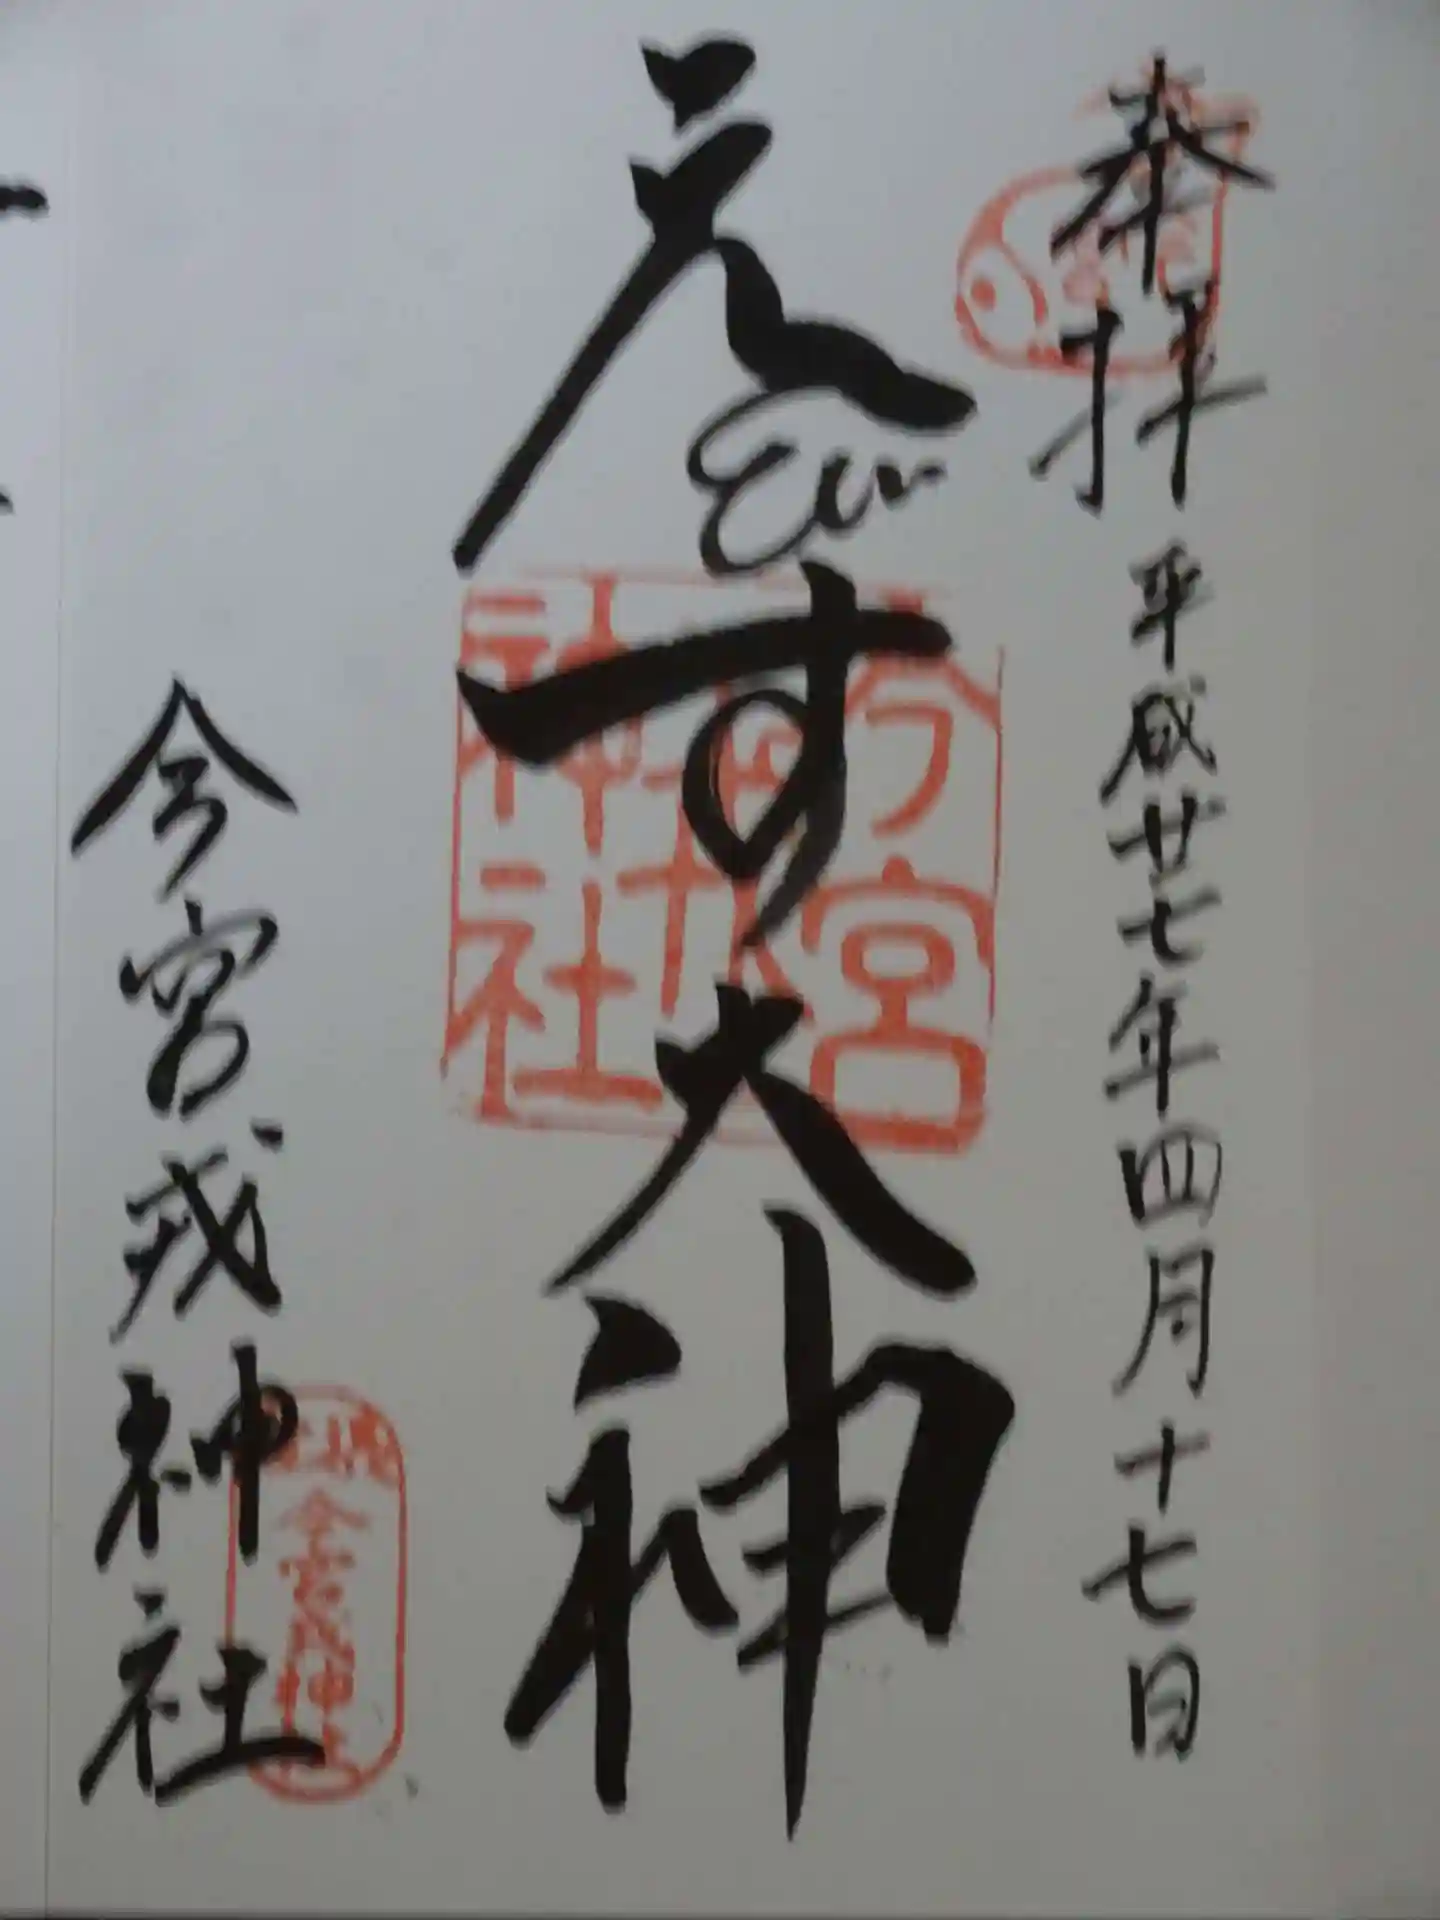 奉拝 平成廿七年四月十七日
えびす大神
今宮戎神社
今宮戎神社
今宮戎神社